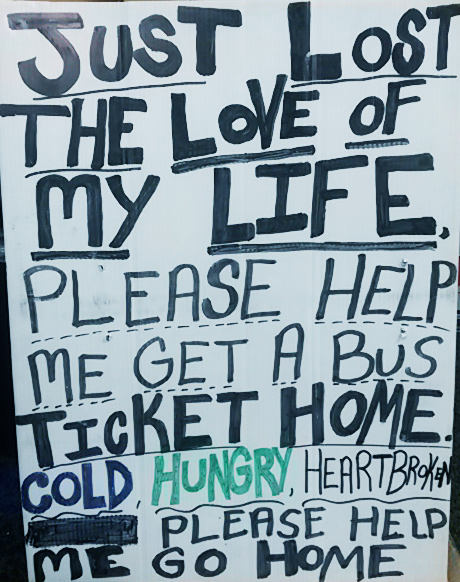 JUST LOST
THE LOVE OF
MY LIFE.
PLEASE HELP
ME GET A BUS
TICKET HOME.
COLD, HUNGRY, HEARTBROKEN
PLEASE HELP
ME GO HOME